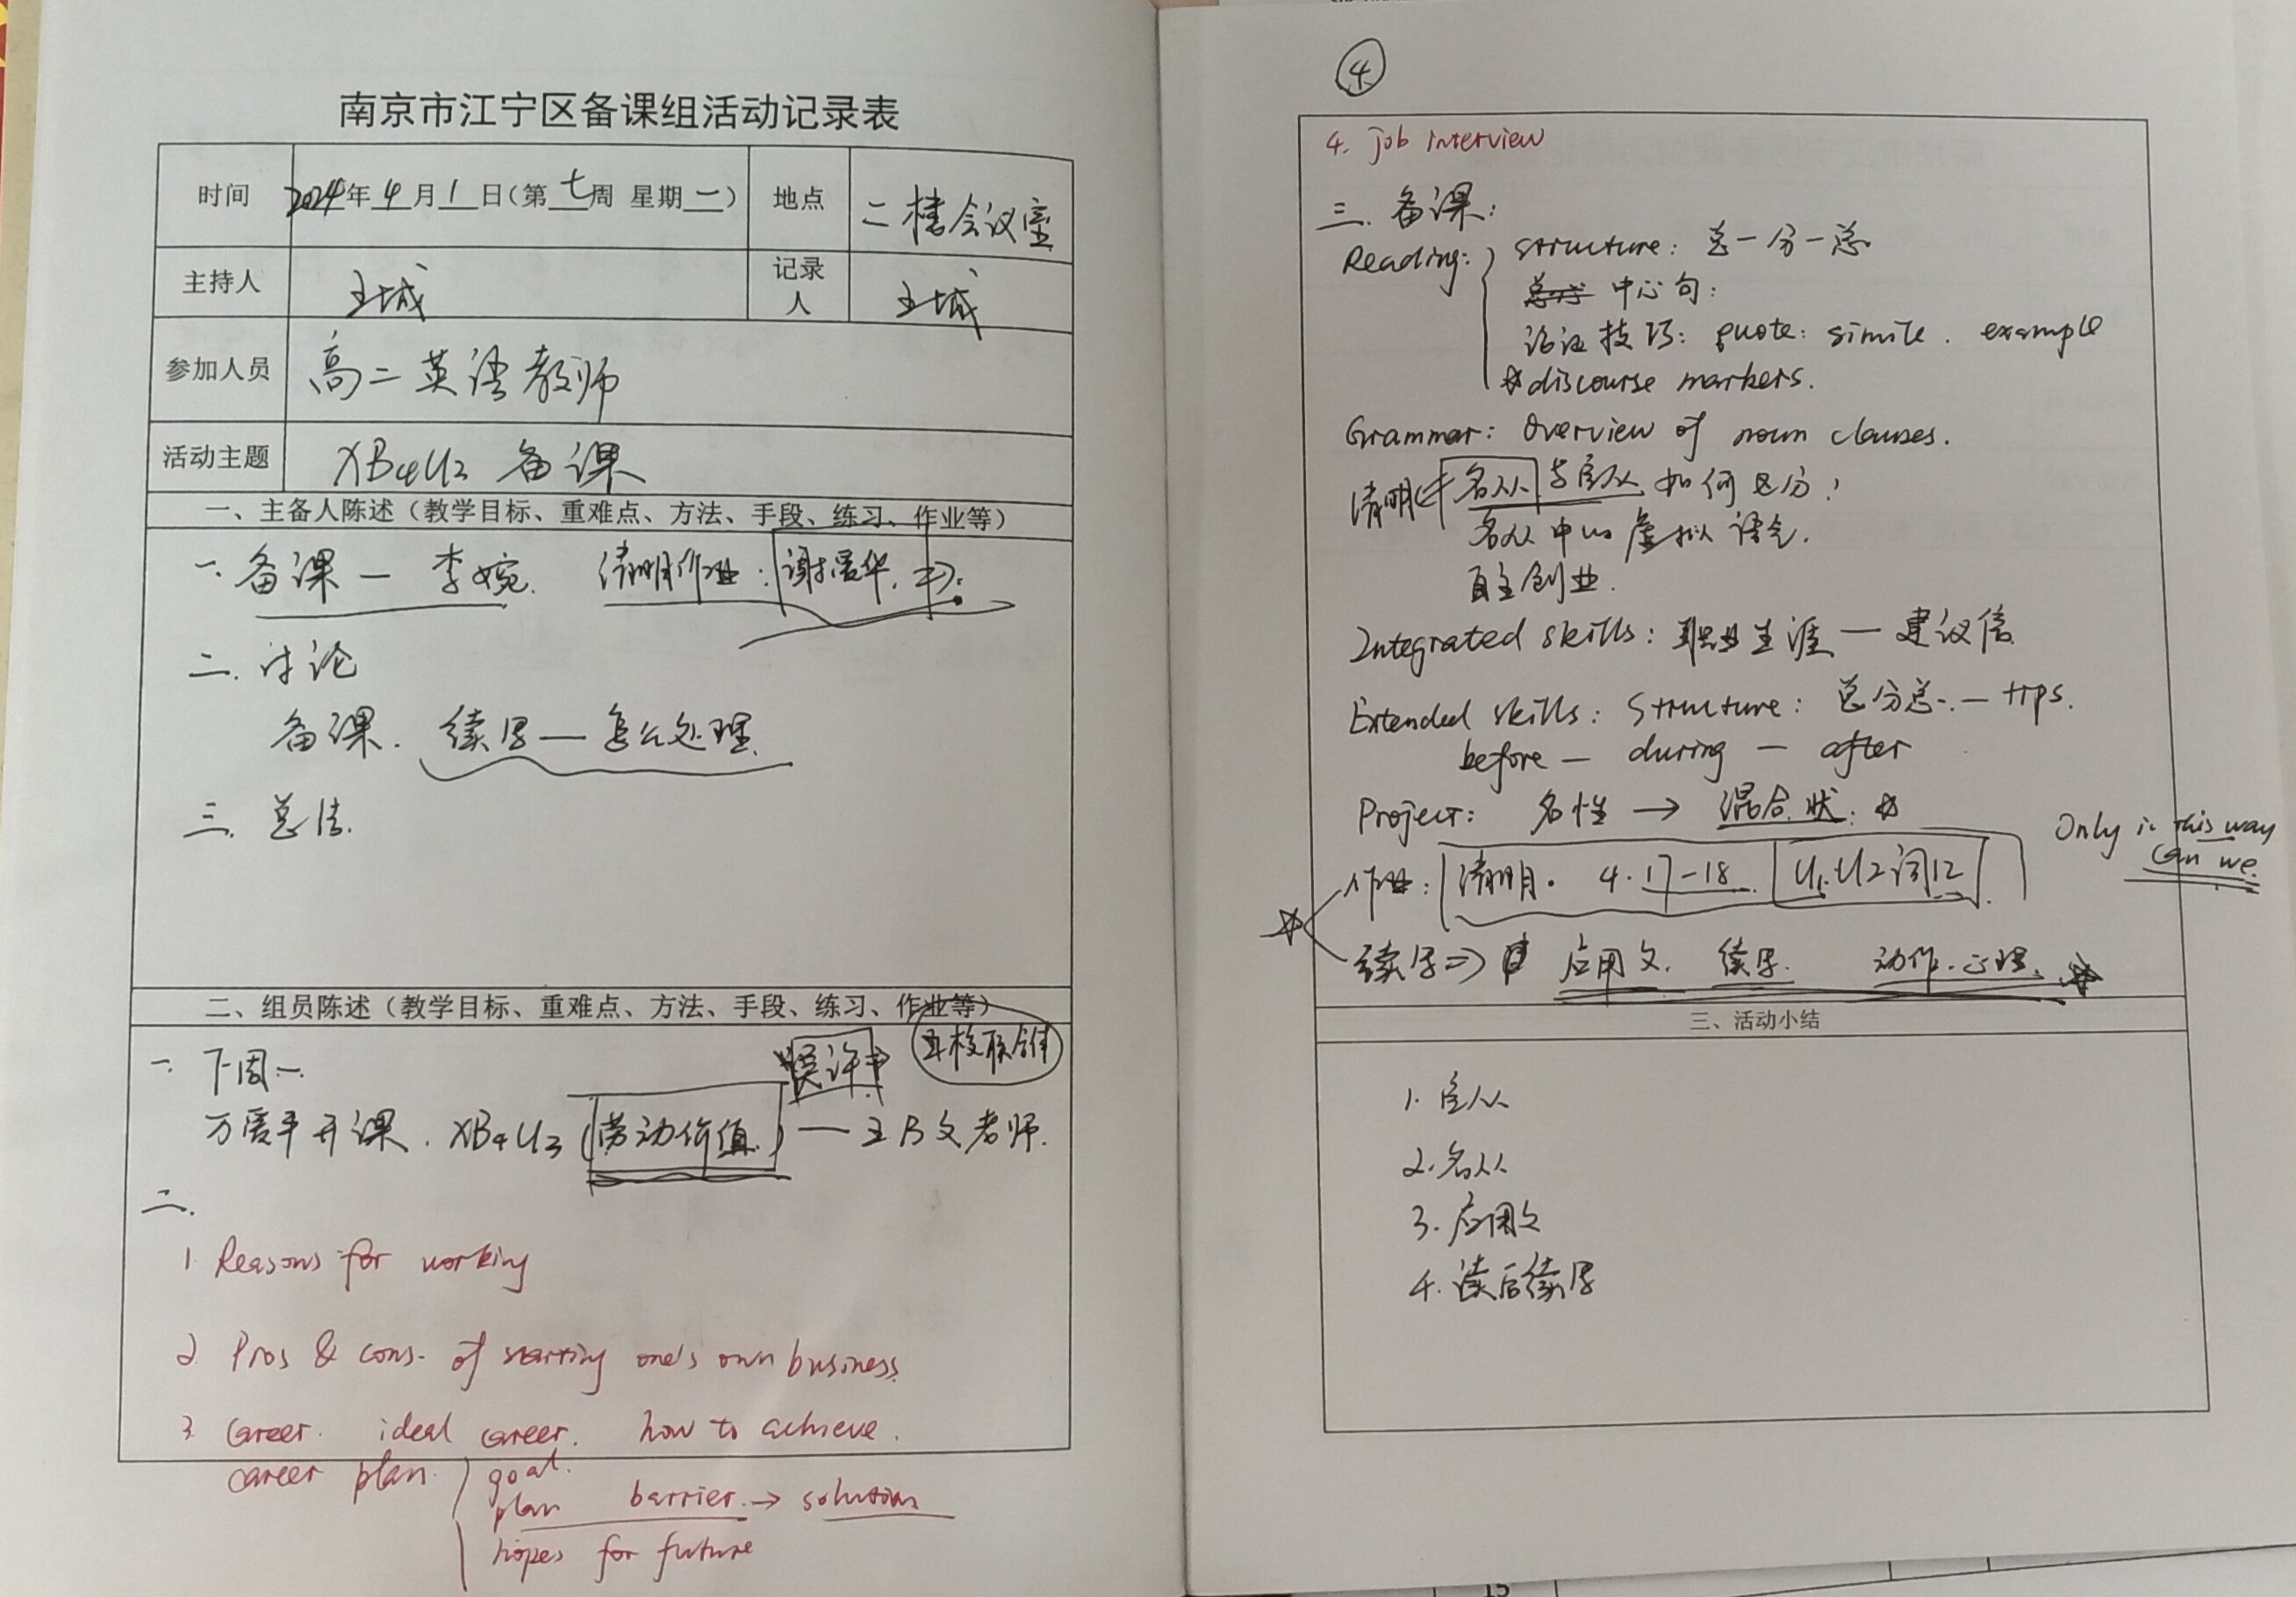 南京市江宁区备课组活动记录表
时间 2024年4月1日（第七周 星期一） 地点 二楼会议室
主持人 王城 记录人 王城
参加人员 高二英语教师
活动主题 XB4U2 备课
一、主备人陈述（教学目标、重难点、方法、手段、练习、作业等）
一. 备课 — 李婉. 清明作业：谢
二. 讨论
备课. 续写 — 怎么处理.
三. 总结.
二、组员陈述（教学目标、重难点、方法、手段、练习、作业等）
一. 下周一.
开课. XB4U3 (劳动价值.) — 老师.
二.
1. Reasons for working
2. Pros & cons. of starting one's own business.
3. Career. ideal career. how to achieve.
career plan. goal.
plan barrier. → solution
hopes for future
④
4. job interview
三. 备课：
Reading: structure: 总一分一总
中心句：
论证技巧: quote: simile. example
☆discourse markers.
Grammar: Overview of noun clauses.
清明 名从与定从 如何区分！
名从中的虚拟语气.
自主创业.
Integrated skills: 职业生涯 — 建议信.
Extended skills: Structure: 总分总. — tips.
before — during — after
Project: 名性 → 混合状. ☆
Only in this way
can we
作业: 清明. 4.17-18 U1.U2词汇
续写⇒ 应用文. 续写. 动作.心理. ☆
三、活动小结
1. 定从
2. 名从
3. 应用文
4. 读后续写
15